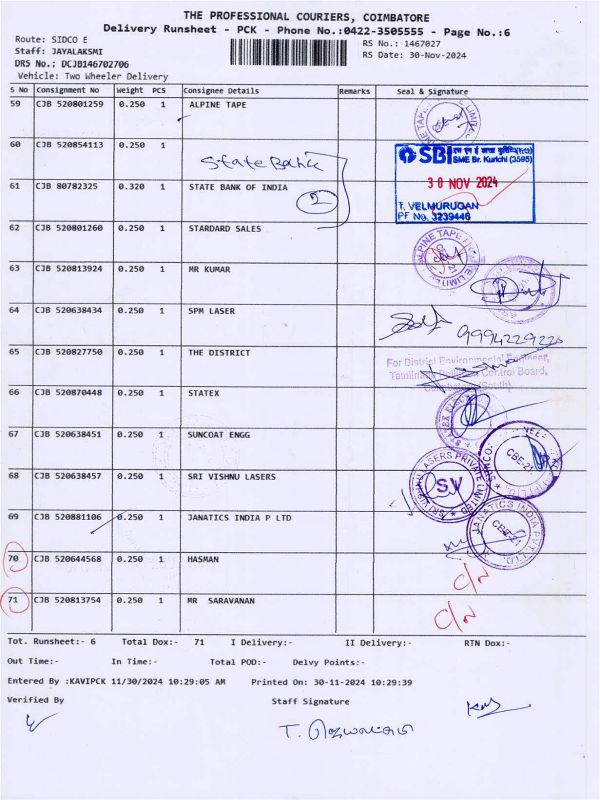 THE PROFESSIONAL COURIERS, COIMBATORE
Delivery Runsheet - PCK - Phone No.:0422-3505555 - Page No.:6
Route: SIDCO E
RS No.: 1467027
Staff: JAYALAKSMI
RS Date: 30-Nov-2024
DRS No.: DCJB146702706
Vehicle: Two Wheeler Delivery
S No Consignment No Weight PCS Consignee Details Remarks Seal & Signature
59 CJB 520801259 0.250 1 ALPINE TAPE
60 CJB 520854113 0.250 1 State Bank
SBI
SME Br. Kurichi (3595)
30 NOV 2024
T. VELMURUGAN
PF No. 3239446
61 CJB 80782325 0.320 1 STATE BANK OF INDIA 2
62 CJB 520801260 0.250 1 STARDARD SALES
ALPINE TAPE LIMITED
63 CJB 520813924 0.250 1 MR KUMAR
64 CJB 520638434 0.250 1 SPM LASER
65 CJB 520827750 0.250 1 THE DISTRICT
For District Environmental Engineer,
Tamilnadu Pollution Control Board,
66 CJB 520870448 0.250 1 STATEX
STATEX
67 CJB 520638451 0.250 1 SUNCOAT ENGG
CBE-21
68 CJB 520638457 0.250 1 SRI VISHNU LASERS
SRI VISHNU LASERS PRIVATE LIMITED
SV
69 CJB 520881106 0.250 1 JANATICS INDIA P LTD
JANATICS INDIA PVT. LTD.
CBE-21
70 CJB 520644568 0.250 1 HASMAN C/N
71 CJB 520813754 0.250 1 MR SARAVANAN C/N
Tot. Runsheet:- 6 Total Dox:- 71 I Delivery:- II Delivery:- RTN Dox:-
Out Time:- In Time:- Total POD:- Delvy Points:-
Entered By :KAVIPCK 11/30/2024 10:29:05 AM Printed On: 30-11-2024 10:29:39
Verified By Staff Signature